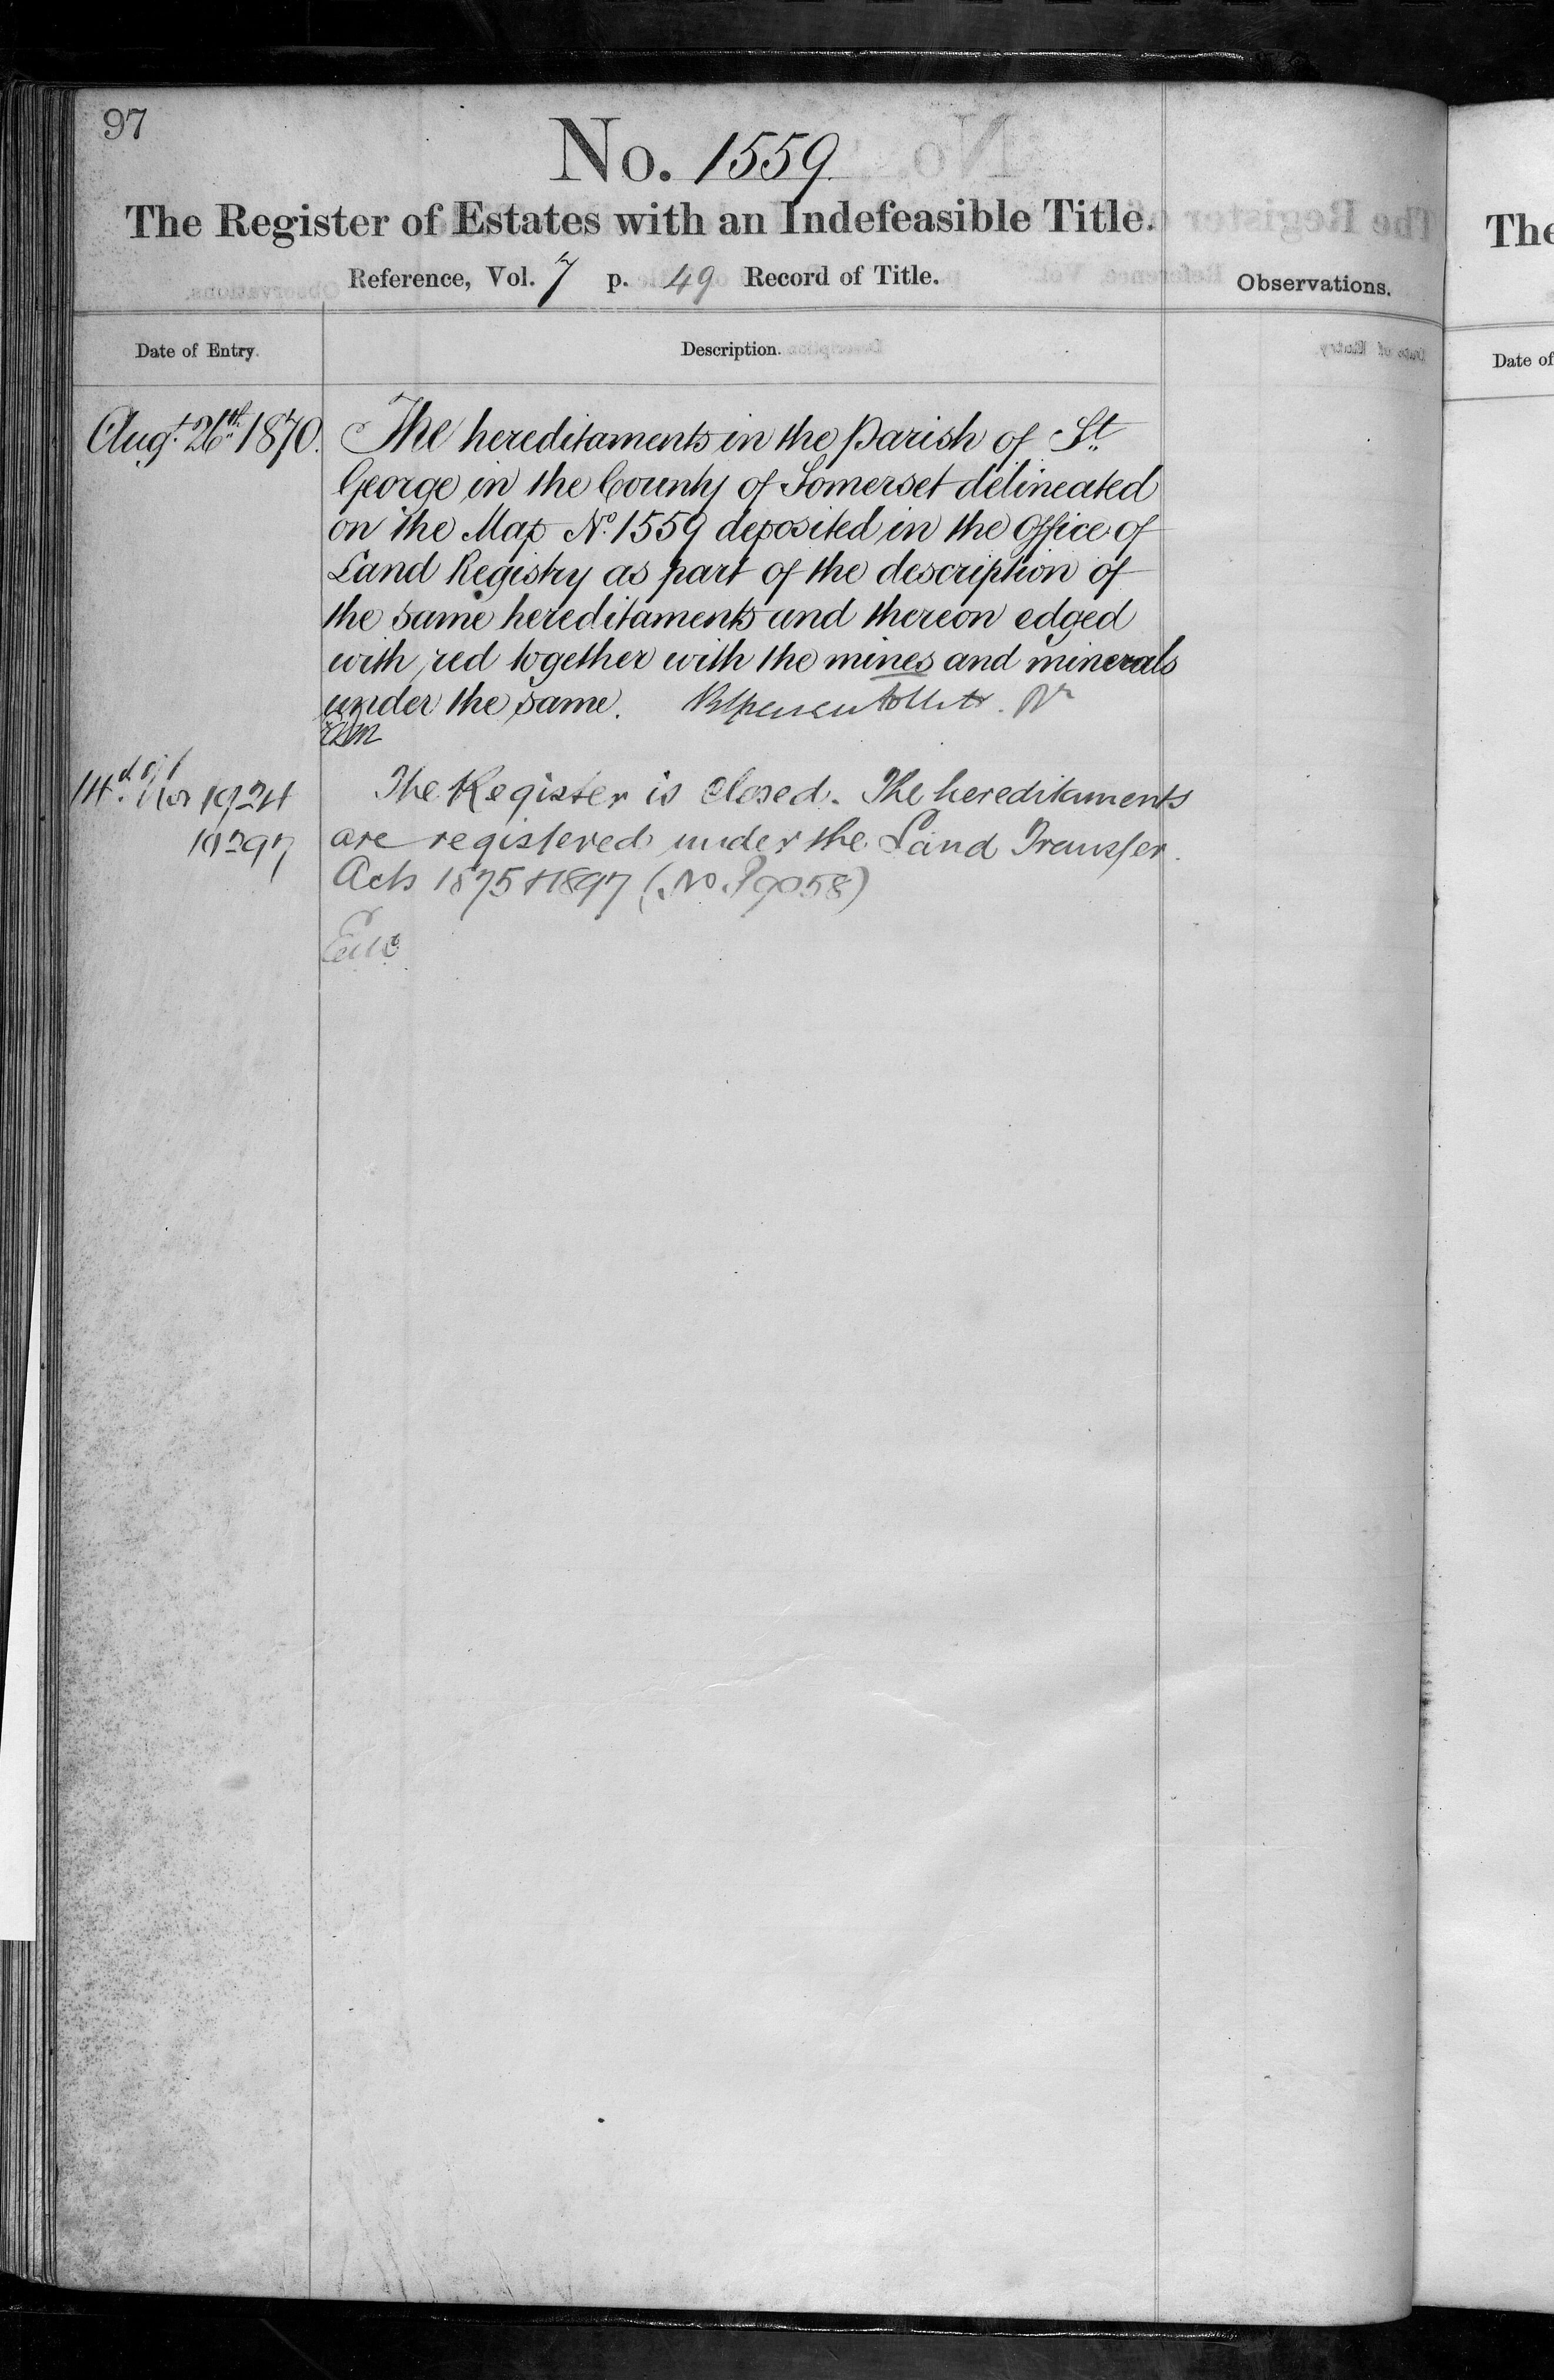 97
No. 1559
The Register of Estates with an Indefeasible Title.
Reference, Vol. 7 p. 49 Record of Title.
Observations.
Date of Entry.
Description.
Augt. 26th 1870.
The hereditaments in the Parish of St.
George in the County of Somerset delineated
on the Map No. 1559 deposited in the Office of
Land Registry as part of the description of
the same hereditaments and thereon edged
with red together with the mines and minerals
under the same.
14th Nov 1924
The Register is Closed. The hereditaments
are registered under the Land Transfer
Acts 1875 & 1897 (No. P9058)
The
Date of